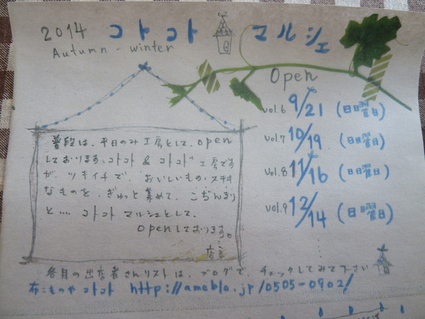 2014 コトコト マルシェ
Autumn - winter
Open
vol.6 9/21 (日曜日)
vol.7 10/19 (日曜日)
vol.8 11/16 (日曜日)
vol.9 12/14 (日曜日)
普段は、平日のみ工房として、open
しております。コトコト & コトコト工房です
が、ツキイチで、おいしいもの・ステキ
なものを、ぎゅっと集めて、こぢんまり
と... コトコト マルシェとして、
openしております。
各月の出店者さんリストは、ブログで、チェックしてみて下さい
布:ものや コトコト http://ameblo.jp/0505-0902/